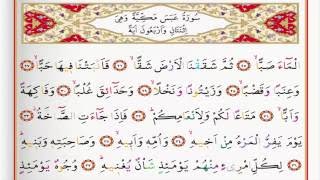 سُورَةُ عَبَسَ مَكِّيَّةٌ وَهِيَ
اثْنَتَانِ وَاَرْبَعُونَ اٰيَةً
الْمَٓاءَ صَبًّاۙ ثُمَّ شَقَقْنَا الْاَرْضَ شَقًّاۙ فَاَنْبَتْنَا ف۪يهَا حَبًّاۙ
وَعِنَبًا وَقَضْبًاۙ وَزَيْتُونًا وَنَخْلًاۙ وَحَدَٓائِقَ غُلْبًاۙ وَفَاكِهَةً
وَاَبًّاۙ مَتَاعًا لَكُمْ وَلِاَنْعَامِكُمْۜ فَاِذَا جَٓاءَتِ الصَّٓاخَّةُۘ
يَوْمَ يَفِرُّ الْمَرْءُ مِنْ اَخ۪يهِۙ وَاُمِّه۪ وَاَب۪يهِۙ وَصَاحِبَتِه۪ وَبَن۪يهِۜ
لِكُلِّ امْرِئٍ مِنْهُمْ يَوْمَئِذٍ شَأْنٌ يُغْن۪يهِۜ وُجُوهٌ يَوْمَئِذٍ